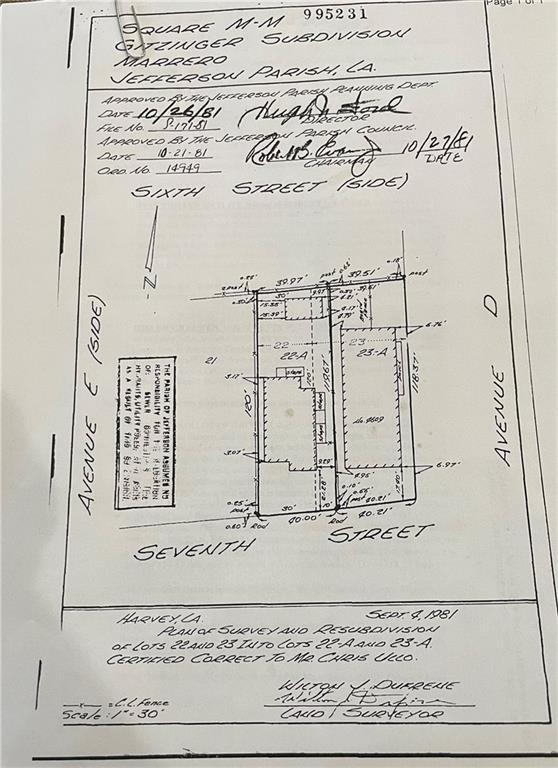 Page 1 of 1
995231
SQUARE M-M
GITZINGER SUBDIVISION
MARRERO
JEFFERSON PARISH, LA.
APPROVED BY THE JEFFERSON PARISH PLANNING DEPT.
DATE 10/26/81
DIRECTOR
FILE NO. S-171-81
APPROVED BY THE JEFFERSON PARISH COUNCIL.
DATE 10-21-81
CHAIRMAN
10/27/81
DATE
ORD. NO. 14949
SIXTH STREET (SIDE)
AVENUE E (SIDE)
AVENUE D
39.97'
39.51'
post
post
30'
22
22-A
23
23-A
21
120'
119.67'
118.37'
3.17'
3.07'
6.76'
6.97'
THE PARISH OF JEFFERSON ASSUMES NO
RESPONSIBILITY FOR THE
OF SEWER
AS A RESULT OF THIS
0.25'
post
0.60'
Rod
30'
40.00'
Rod
40.21'
SEVENTH STREET
HARVEY, LA. SEPT. 4, 1981
PLAN OF SURVEY AND RESUBDIVISION
OF LOTS 22 AND 23 INTO LOTS 22-A AND 23-A.
CERTIFIED CORRECT TO MR. CHRIS ULLO.
WILTON J. DUFRENE
LAND SURVEYOR
= C.L. Fence
Scale: 1" = 30'